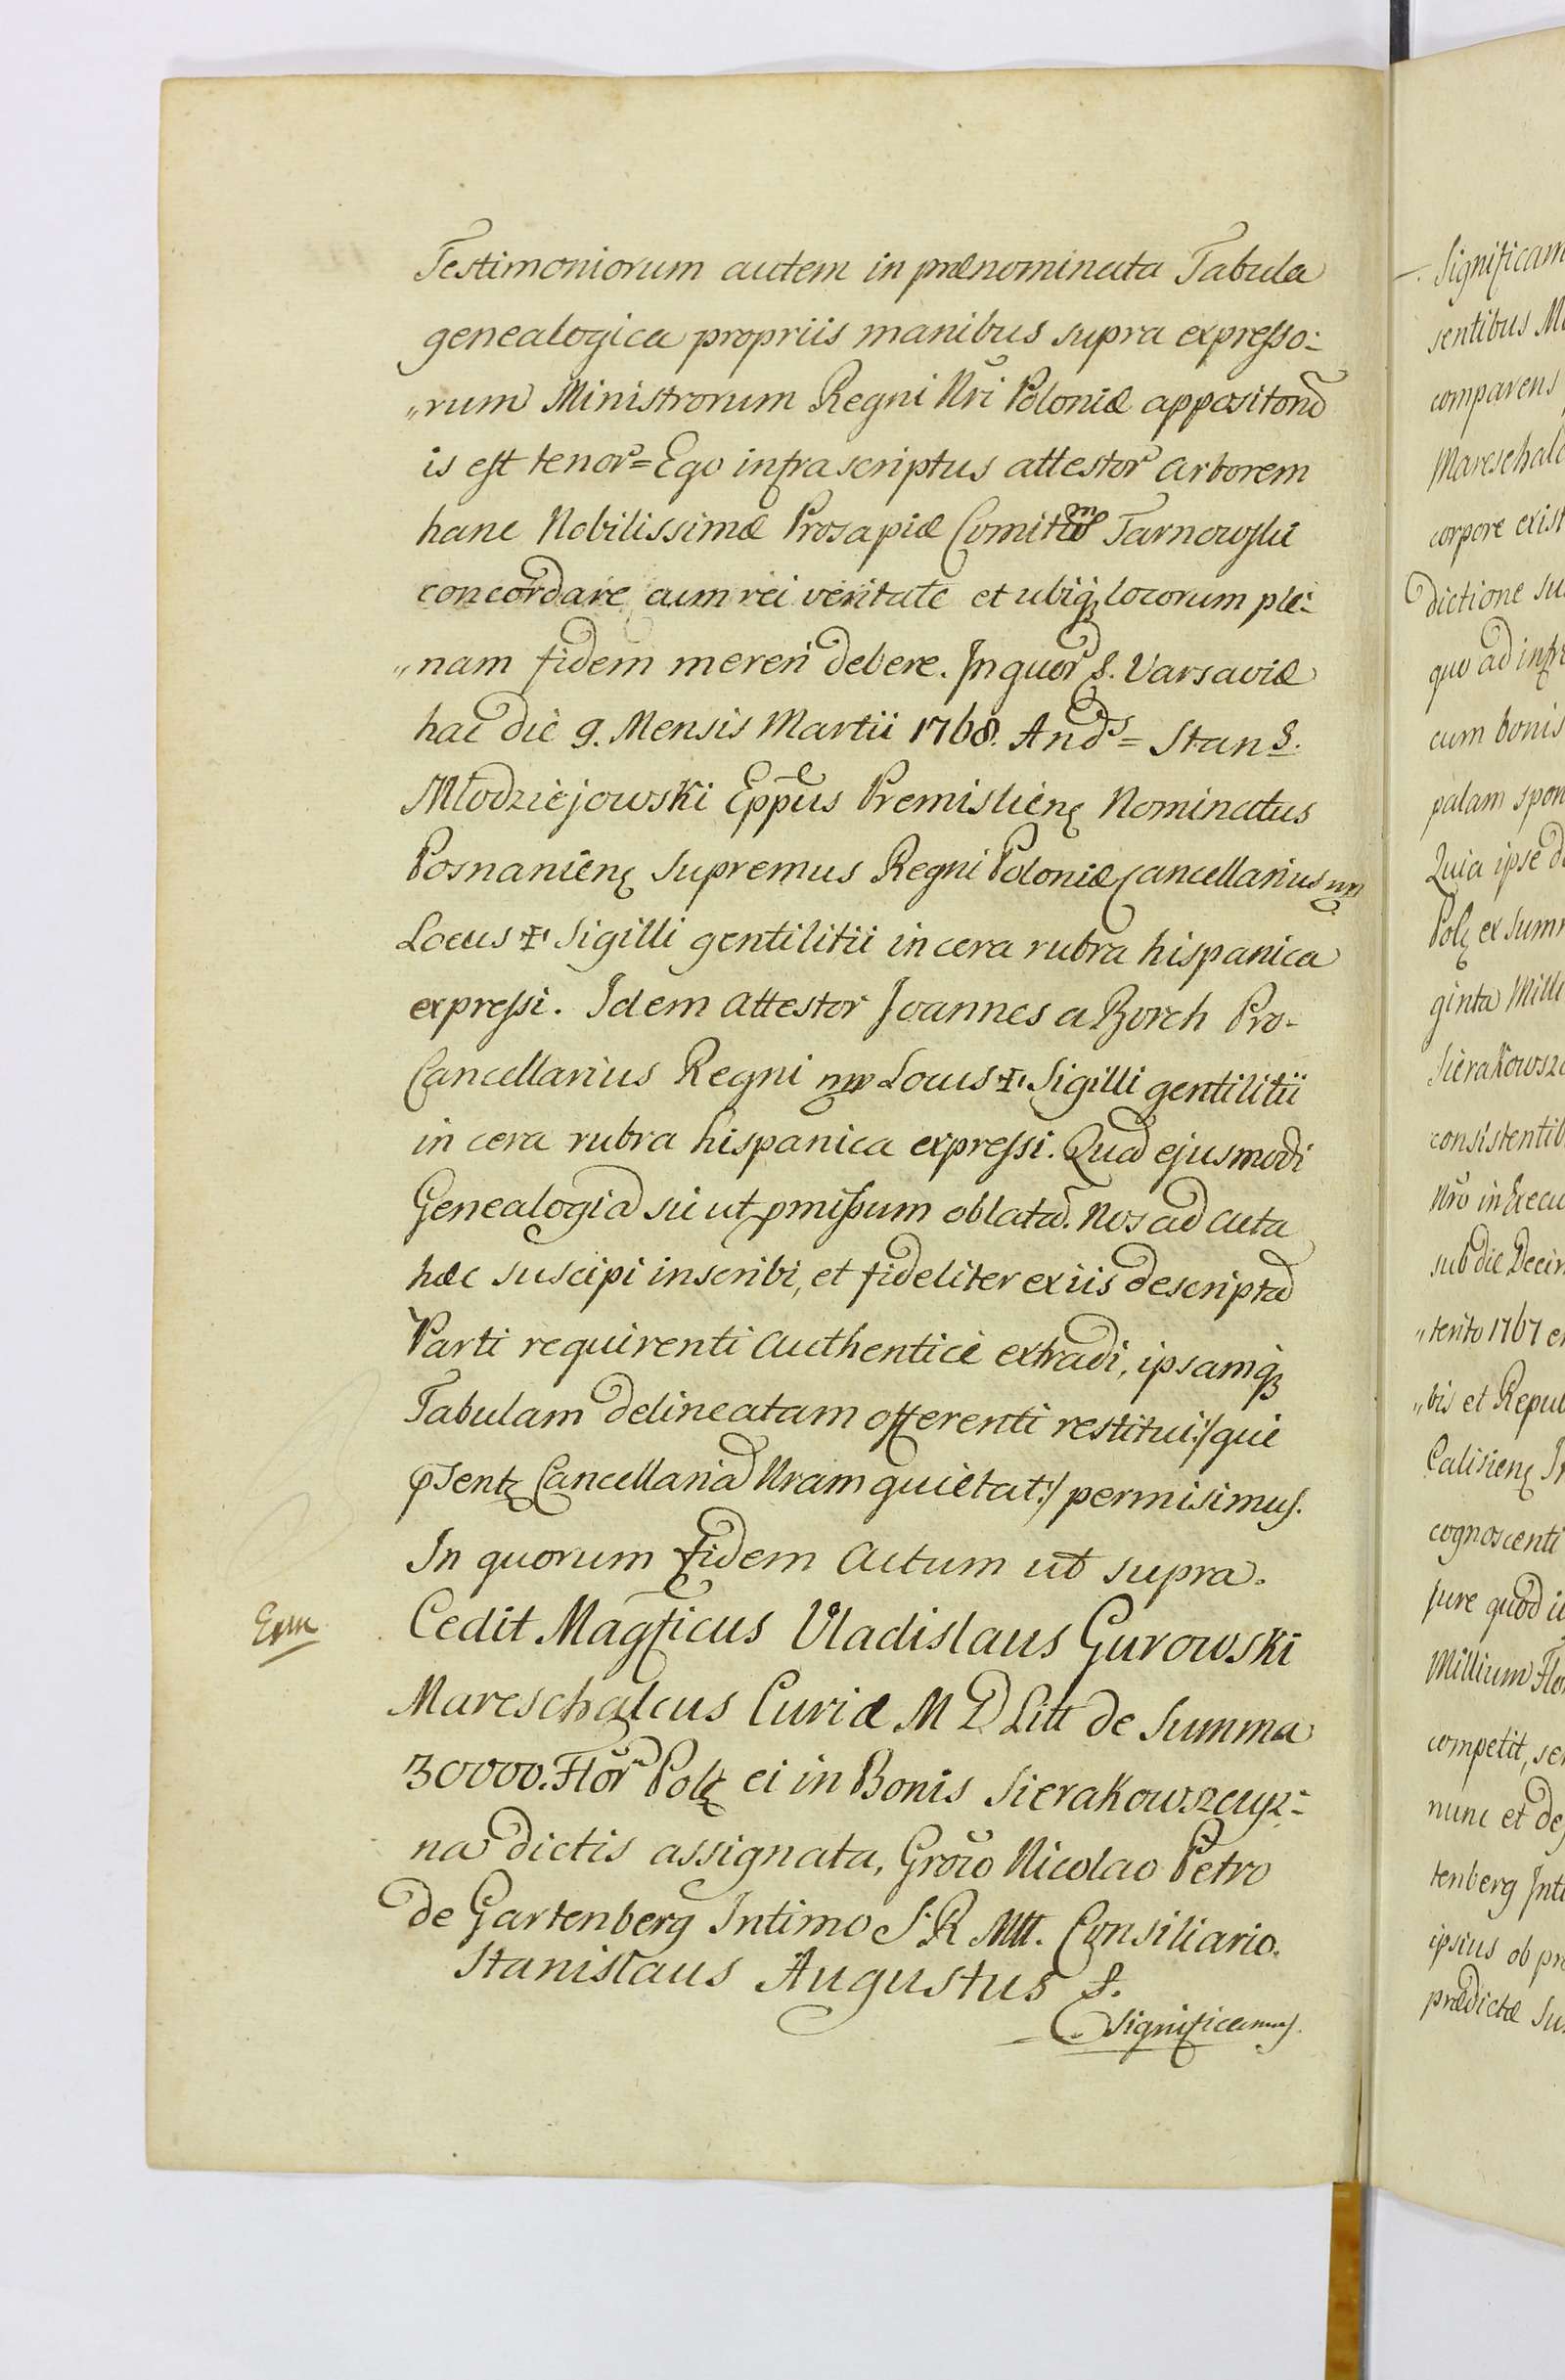 Testimoniorum autem in prænominata Tabula
genealogica propriis manibus supra expresso-
„rum Ministrorum Regni Nri Poloniæ appositorũ
is est tenor = Ego infrascriptus attestor arborem
hanc Nobilissimæ Prosapiæ Comitum Tarnowski
concordare cum rei veritate et ubiq locorum ple-
„nam fidem mereri debere. In quor f. Varsaviæ
hac die 9. Mensis Martii 1768. Ands = Stan S.
Młodziejowski Eppus Premislien Nominatus
Posnanien Supremus Regni Poloniæ Cancellarius mp
Locus ✠ Sigilli gentilitii in cera rubra hispanica
expressi. Idem attestor Joannes a Borch Pro-
Cancellarius Regni mp Locus ✠ Sigilli gentilitii
in cera rubra hispanica expressi. Quad ejusmodi
Genealogiã sic ut pmissum oblatã. Nos ad acta
hæc suscipi inscribi, et fideliter ex iis descriptã
Parti requirenti authentice extradi, ipsamq
Tabulam delineatam offerenti restitui :/ qui
psent Cancellariã Nram quietat :/ permisimus.
In quorum fidem Actum ut supra.
Cedit Magficus Vladislaus Gurowski
Mareschalcus Curiæ M D Litt de Summa
30000. Flor Pol ei in Bonis Sierakowszczyz-
na dictis assignata, Groso Nicolao Petro
de Gartenberg Intimo S. R. Mtt. Consiliario.
Stanislaus Augustus f.
Significamus
Significam
sentibus
comparens
Mareschalc
corpore exist
dictione su
quo ad infr
cum bonis
palam spon
Quia ipse d
Pol ex Sum
ginta Mill
Sierakowsz
consistentib
Nro in
sub die Decim
„terito 1767 e
„bis et Repu
Calisien
cognoscenti
jure quod
Millium Flo
competit, se
nunc et de
tenberg Int
ipsius ob pr
prædictæ Su